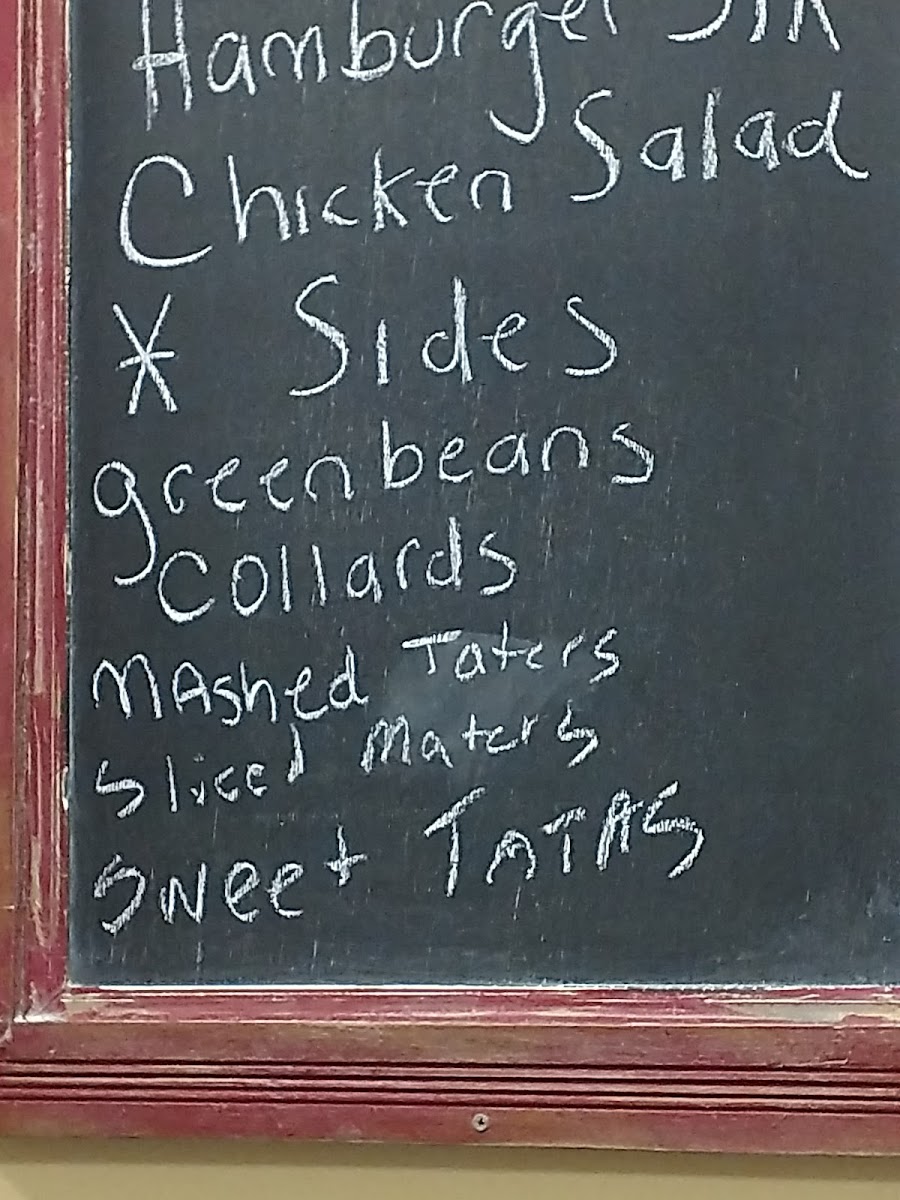 Hamburger Stk
Chicken Salad
* Sides
greenbeans
Collards
MAshed Taters
Sliced Maters
Sweet TATAS